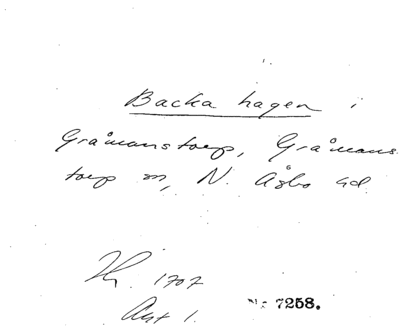 Backa hagen i
Gråmanstorp, Gråmans
torp sn, N. Åsbo hd.
1707
Akt 1.
Nr 7258.